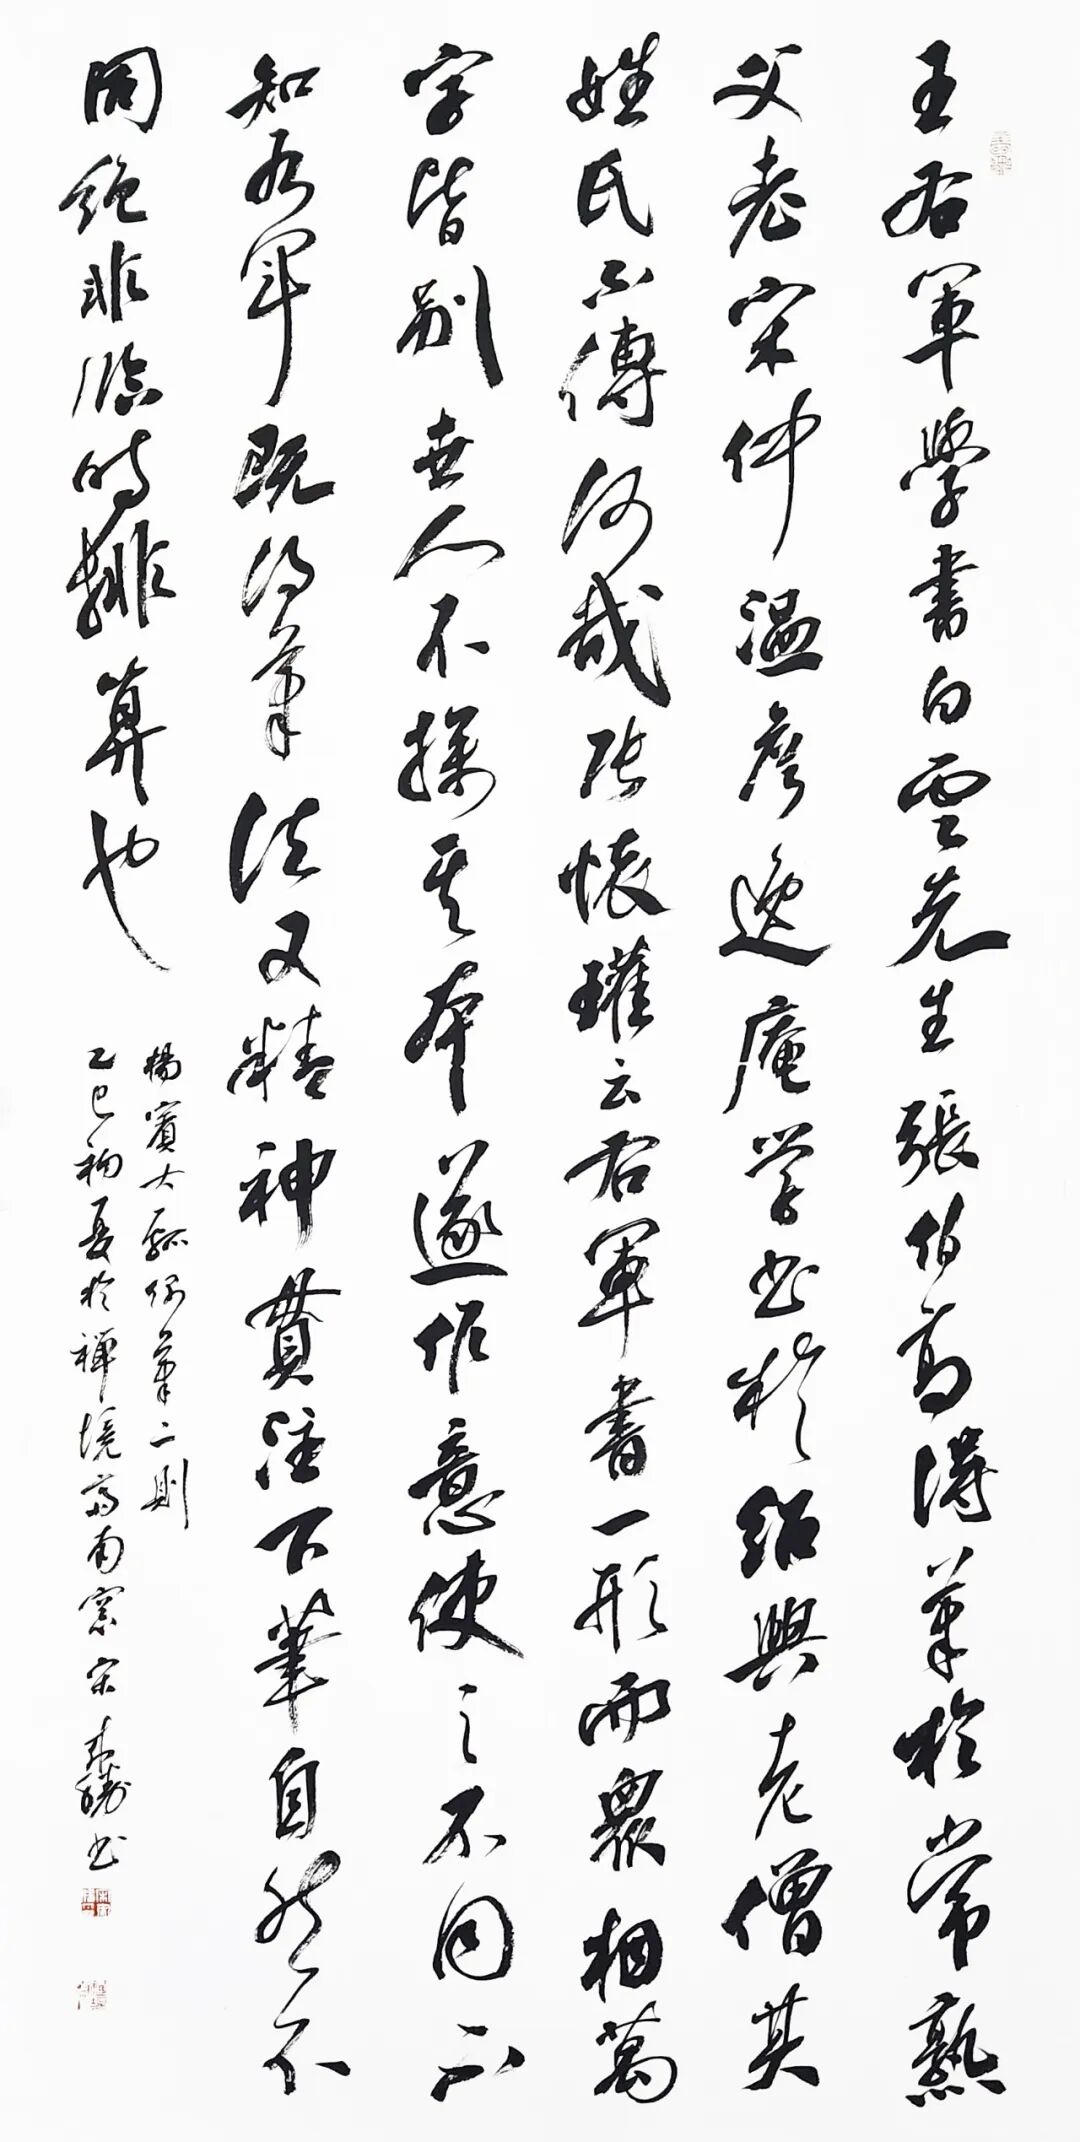 王右軍學書白雲先生張伯高得筆於常熟
父老宋仲溫詹逸庵學书於紹興老僧其
姓氏不傳何哉張懷瓘云右軍書一形而眾相萬
字皆別世人不探其本遂作意使之不同不
知右軍既得筆法又精神貫注下筆自然不
同絕非臨時排算也
楊賓大瓢偶筆二則
乙巳初夏於禪境齋南窗宋
书